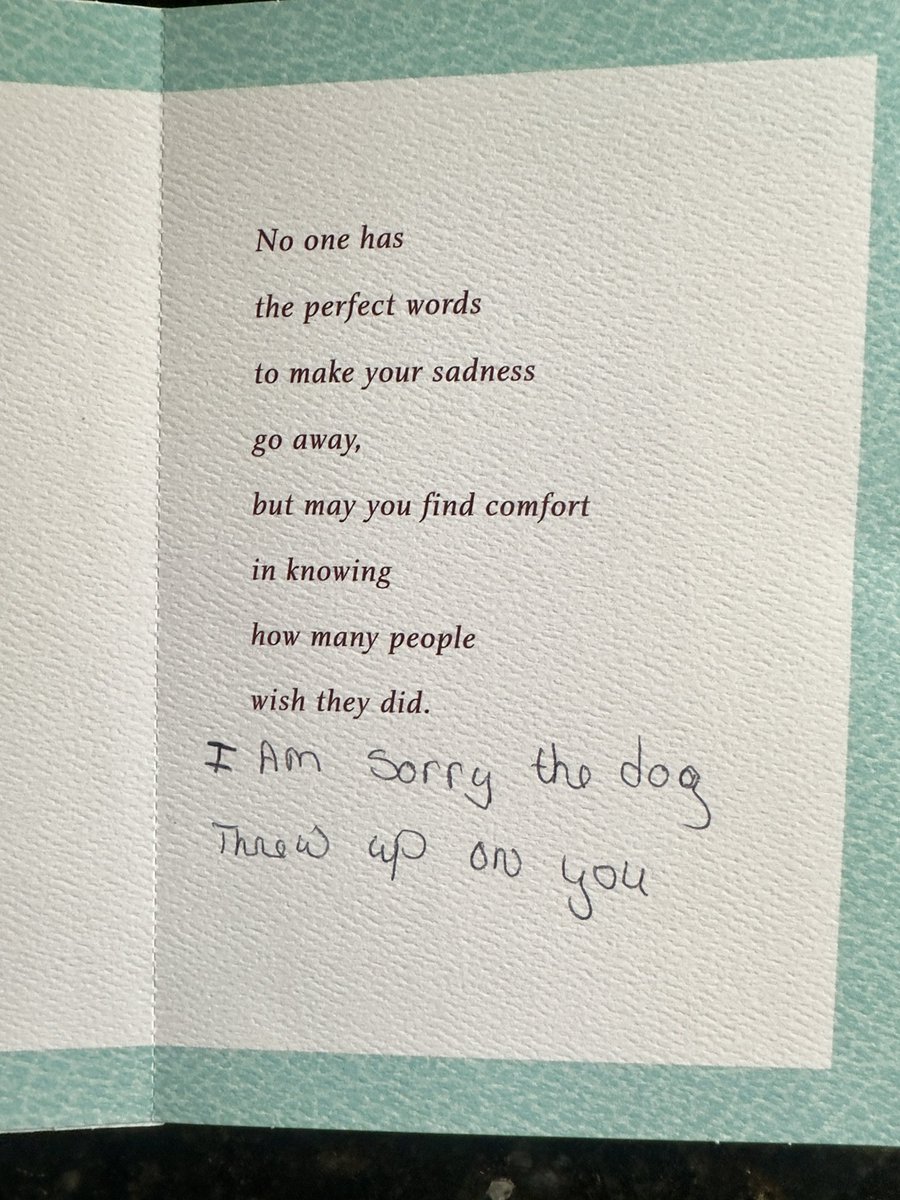 No one has
the perfect words
to make your sadness
go away,
but may you find comfort
in knowing
how many people
wish they did.
I Am Sorry the dog
Threw up on you